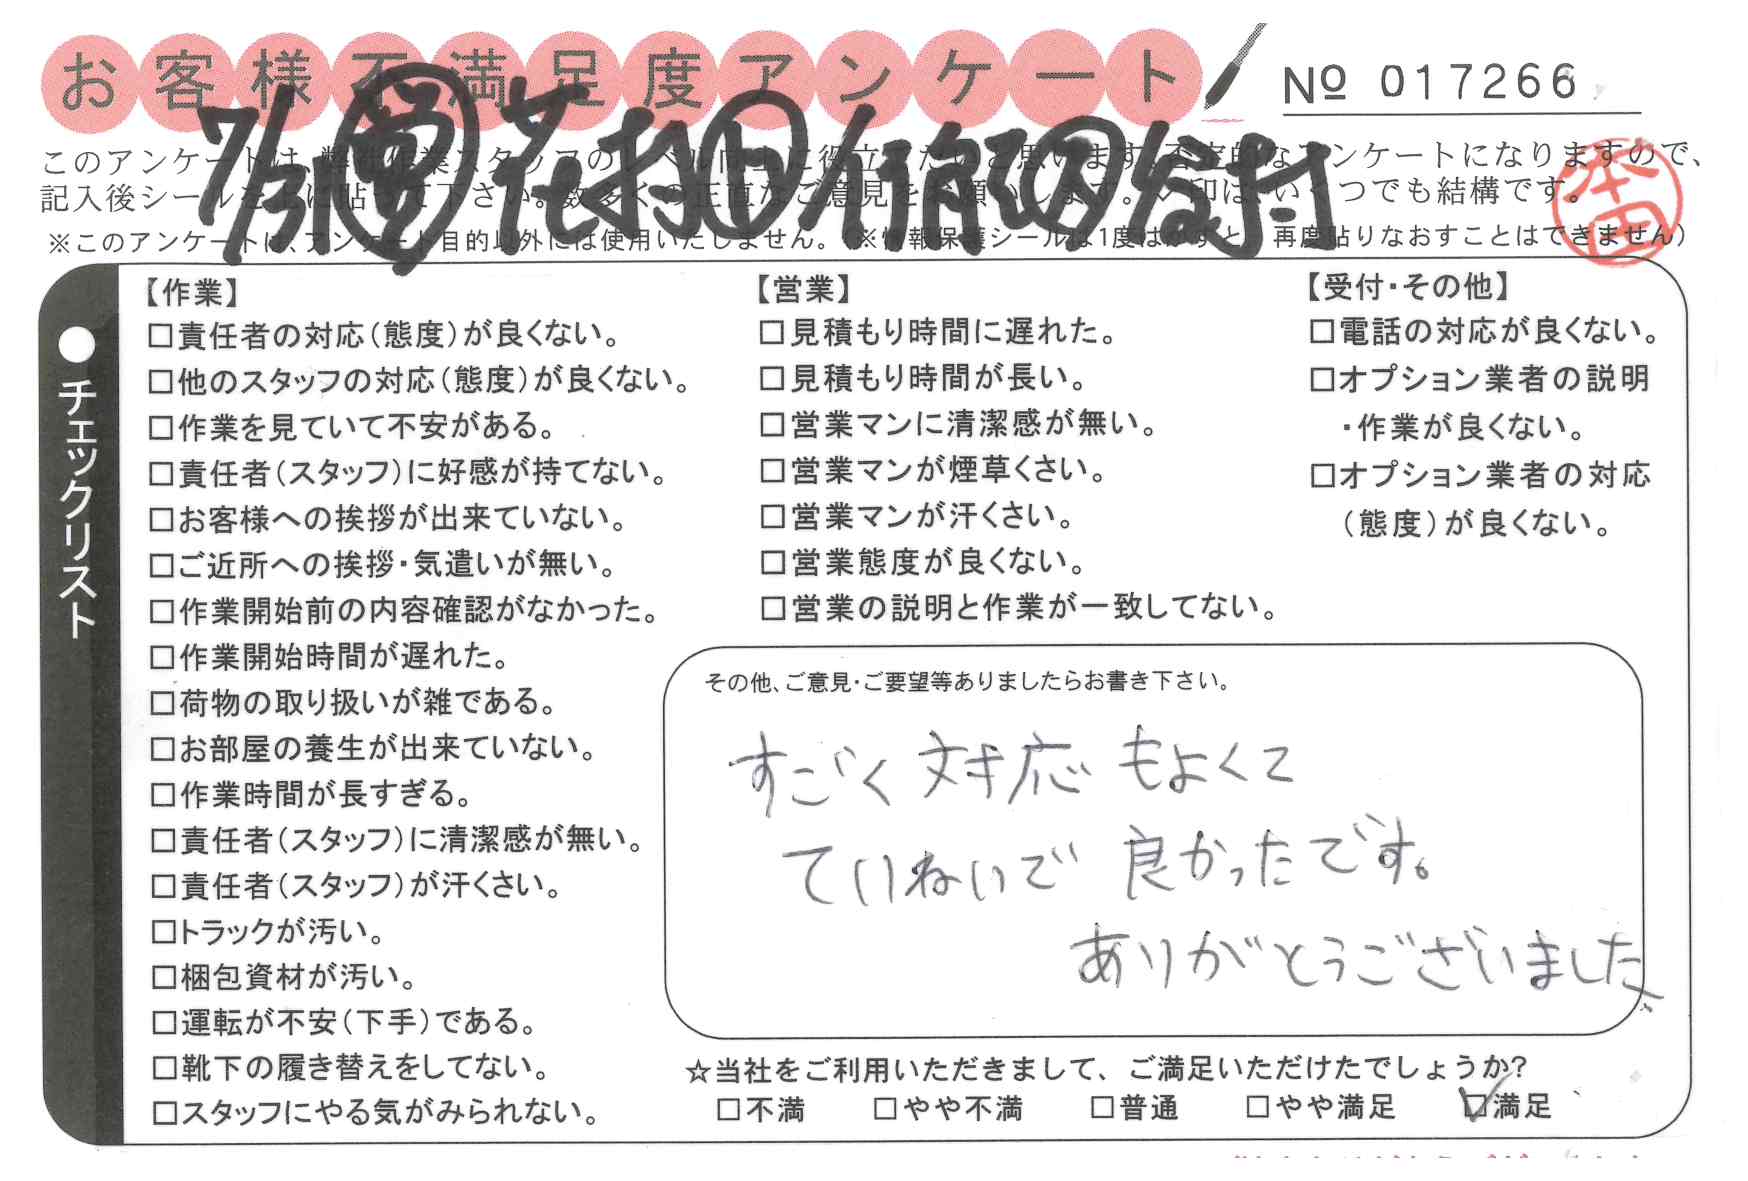 お客様不満足度アンケート
№ 017266
7/31
本田
このアンケートは、弊社作業スタッフのレベル向上に役立てたいと思います。否定的なアンケートになりますので、
記入後シールを上に貼って下さい。数多くの正直なご意見をお願いします。✓印は、いくつでも結構です。
※このアンケートは、アンケート目的以外には使用いたしません。(※情報保護シールは1度はがすと、再度貼りなおすことはできません)
●チェックリスト
【作業】
□責任者の対応(態度)が良くない。
□他のスタッフの対応(態度)が良くない。
□作業を見ていて不安がある。
□責任者(スタッフ)に好感が持てない。
□お客様への挨拶が出来ていない。
□ご近所への挨拶・気遣いが無い。
□作業開始前の内容確認がなかった。
□作業開始時間が遅れた。
□荷物の取り扱いが雑である。
□お部屋の養生が出来ていない。
□作業時間が長すぎる。
□責任者(スタッフ)に清潔感が無い。
□責任者(スタッフ)が汗くさい。
□トラックが汚い。
□梱包資材が汚い。
□運転が不安(下手)である。
□靴下の履き替えをしてない。
□スタッフにやる気がみられない。
【営業】
□見積もり時間に遅れた。
□見積もり時間が長い。
□営業マンに清潔感が無い。
□営業マンが煙草くさい。
□営業マンが汗くさい。
□営業態度が良くない。
□営業の説明と作業が一致してない。
【受付・その他】
□電話の対応が良くない。
□オプション業者の説明
・作業が良くない。
□オプション業者の対応
(態度)が良くない。
その他、ご意見・ご要望等ありましたらお書き下さい。
すごく対応もよくて
ていねいで良かったです。
ありがとうございました
☆当社をご利用いただきまして、ご満足いただけたでしょうか?
□不満 □やや不満 □普通 □やや満足 ☑満足